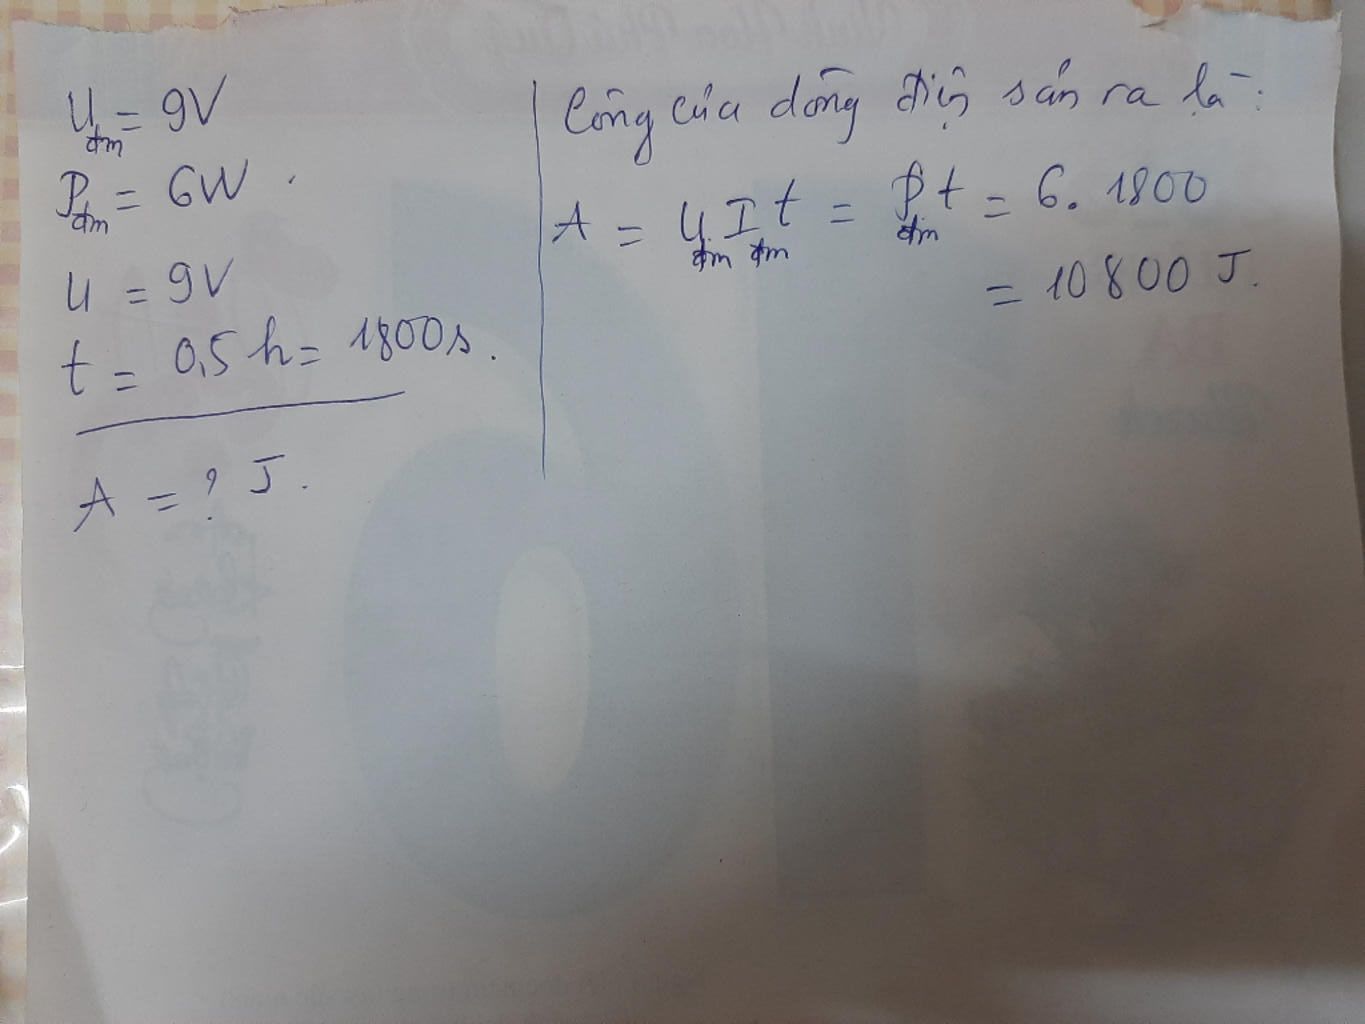 U đm = 9V
P đm = 6W.
U = 9V
t = 0,5 h = 1800s.
A = ? J.
Công của dòng điện sản ra là:
A = U đm . I đm t = P đm . t = 6. 1800
= 10 800 J.